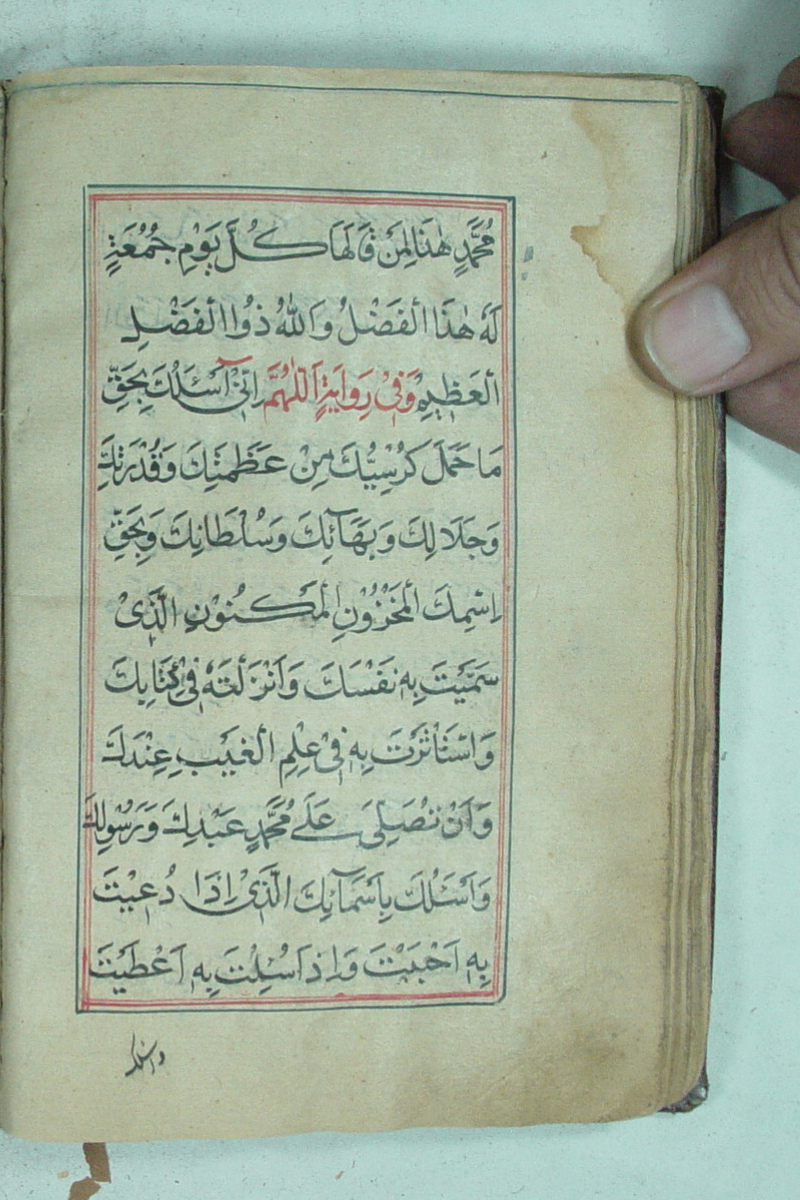 مُحَمَّدٍ هٰذَا لِمَنْ قَالَهَا كُلَّ يَوْمِ جُمُعَةٍ
لَهُ هٰذَا الْفَضْلُ وَاللّٰهُ ذُوا الْفَضْلِ
الْعَظِيْمِ وَفِيْ رِوَايَةٍ اَللّٰهُمَّ اِنِّيْٓ اَسْئَلُكَ بِحَقِّ
مَا حَمَلَ كُرْسِيُّكَ مِنْ عَظَمَتِكَ وَقُدْرَتِكَ
وَجَلَالِكَ وَبَهَآئِكَ وَسُلْطَانِكَ وَبِحَقِّ
اِسْمِكَ الْمَخْزُوْنِ الْمَكْنُوْنِ الَّذِىْ
سَمَّيْتَ بِهٖ نَفْسَكَ وَاَنْزَلْتَهُ فِيْ كِتَابِكَ
وَاسْتَاْثَرْتَ بِهٖ فِيْ عِلْمِ الْغَيْبِ عِنْدَكَ
وَاَنْ تُصَلِّىَ عَلٰى مُحَمَّدٍ عَبْدِكَ وَرَسُوْلِكَ
وَاَسْئَلُكَ بِاَسْمَآئِكَ الَّذِىْ اِذَا دُعِيْتَ
بِهٖ اَجَبْتَ وَاِذَا سُئِلْتَ بِهٖ اَعْطَيْتَ
واسئلك